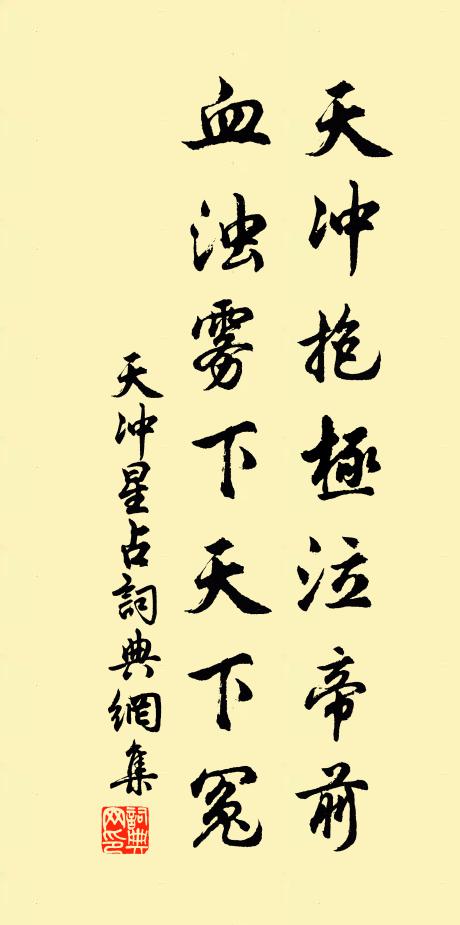 天冲抱極泣帝前
血浊雾下天下冤
天冲星占詞典網集
詞典网印